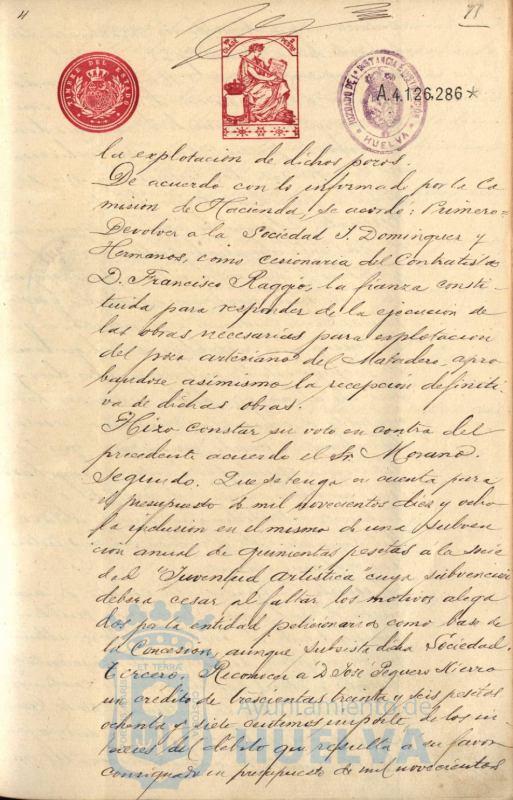 11
TIMBRE DEL ESTADO
CLASE
PESETA
JUZGADO DE 1ª INSTANCIA E INSTRUCCION
HUELVA
A.4.126.286*
la explotacion de dichos pozos.
De acuerdo con lo informado por la Co
mision de Hacienda, se acordó: Primero=
Devolver a la Sociedad J. Dominguez y
Hermanos, como cesionaria del Contratista
D. Francisco Raggio, la fianza consti-
tuida para responder de la ejecucion de
las obras necesarias para explotacion
del pozo artesiano del Matadero, apro
bandose asimismo la recepcion definiti
va de dichas obras.
Hizo constar su voto en contra del
precedente acuerdo el Sr Moreno.
Segundo. Que se tenga en cuenta para
el presupuesto de mil novecientos diez y ocho
la inclusion en el mismo de una subven
cion anual de quinientas pesetas a la socie
dad "Juventud Artística" cuya subvencion
debera cesar al faltar los motivos alega
dos por la entidad peticionaria como base de
la Concesion, aunque subsista dicha Sociedad.
Tercero. Reconocer á D. José Peguero Hierro
un crédito de trescientas treinta y seis pesetas
ochenta y siete centimos importe de los in-
tereses del débito que resulta a su favor
consignado en presupuesto de mil novecientos
ET TERRA
Ayuntamiento de
HUELVA